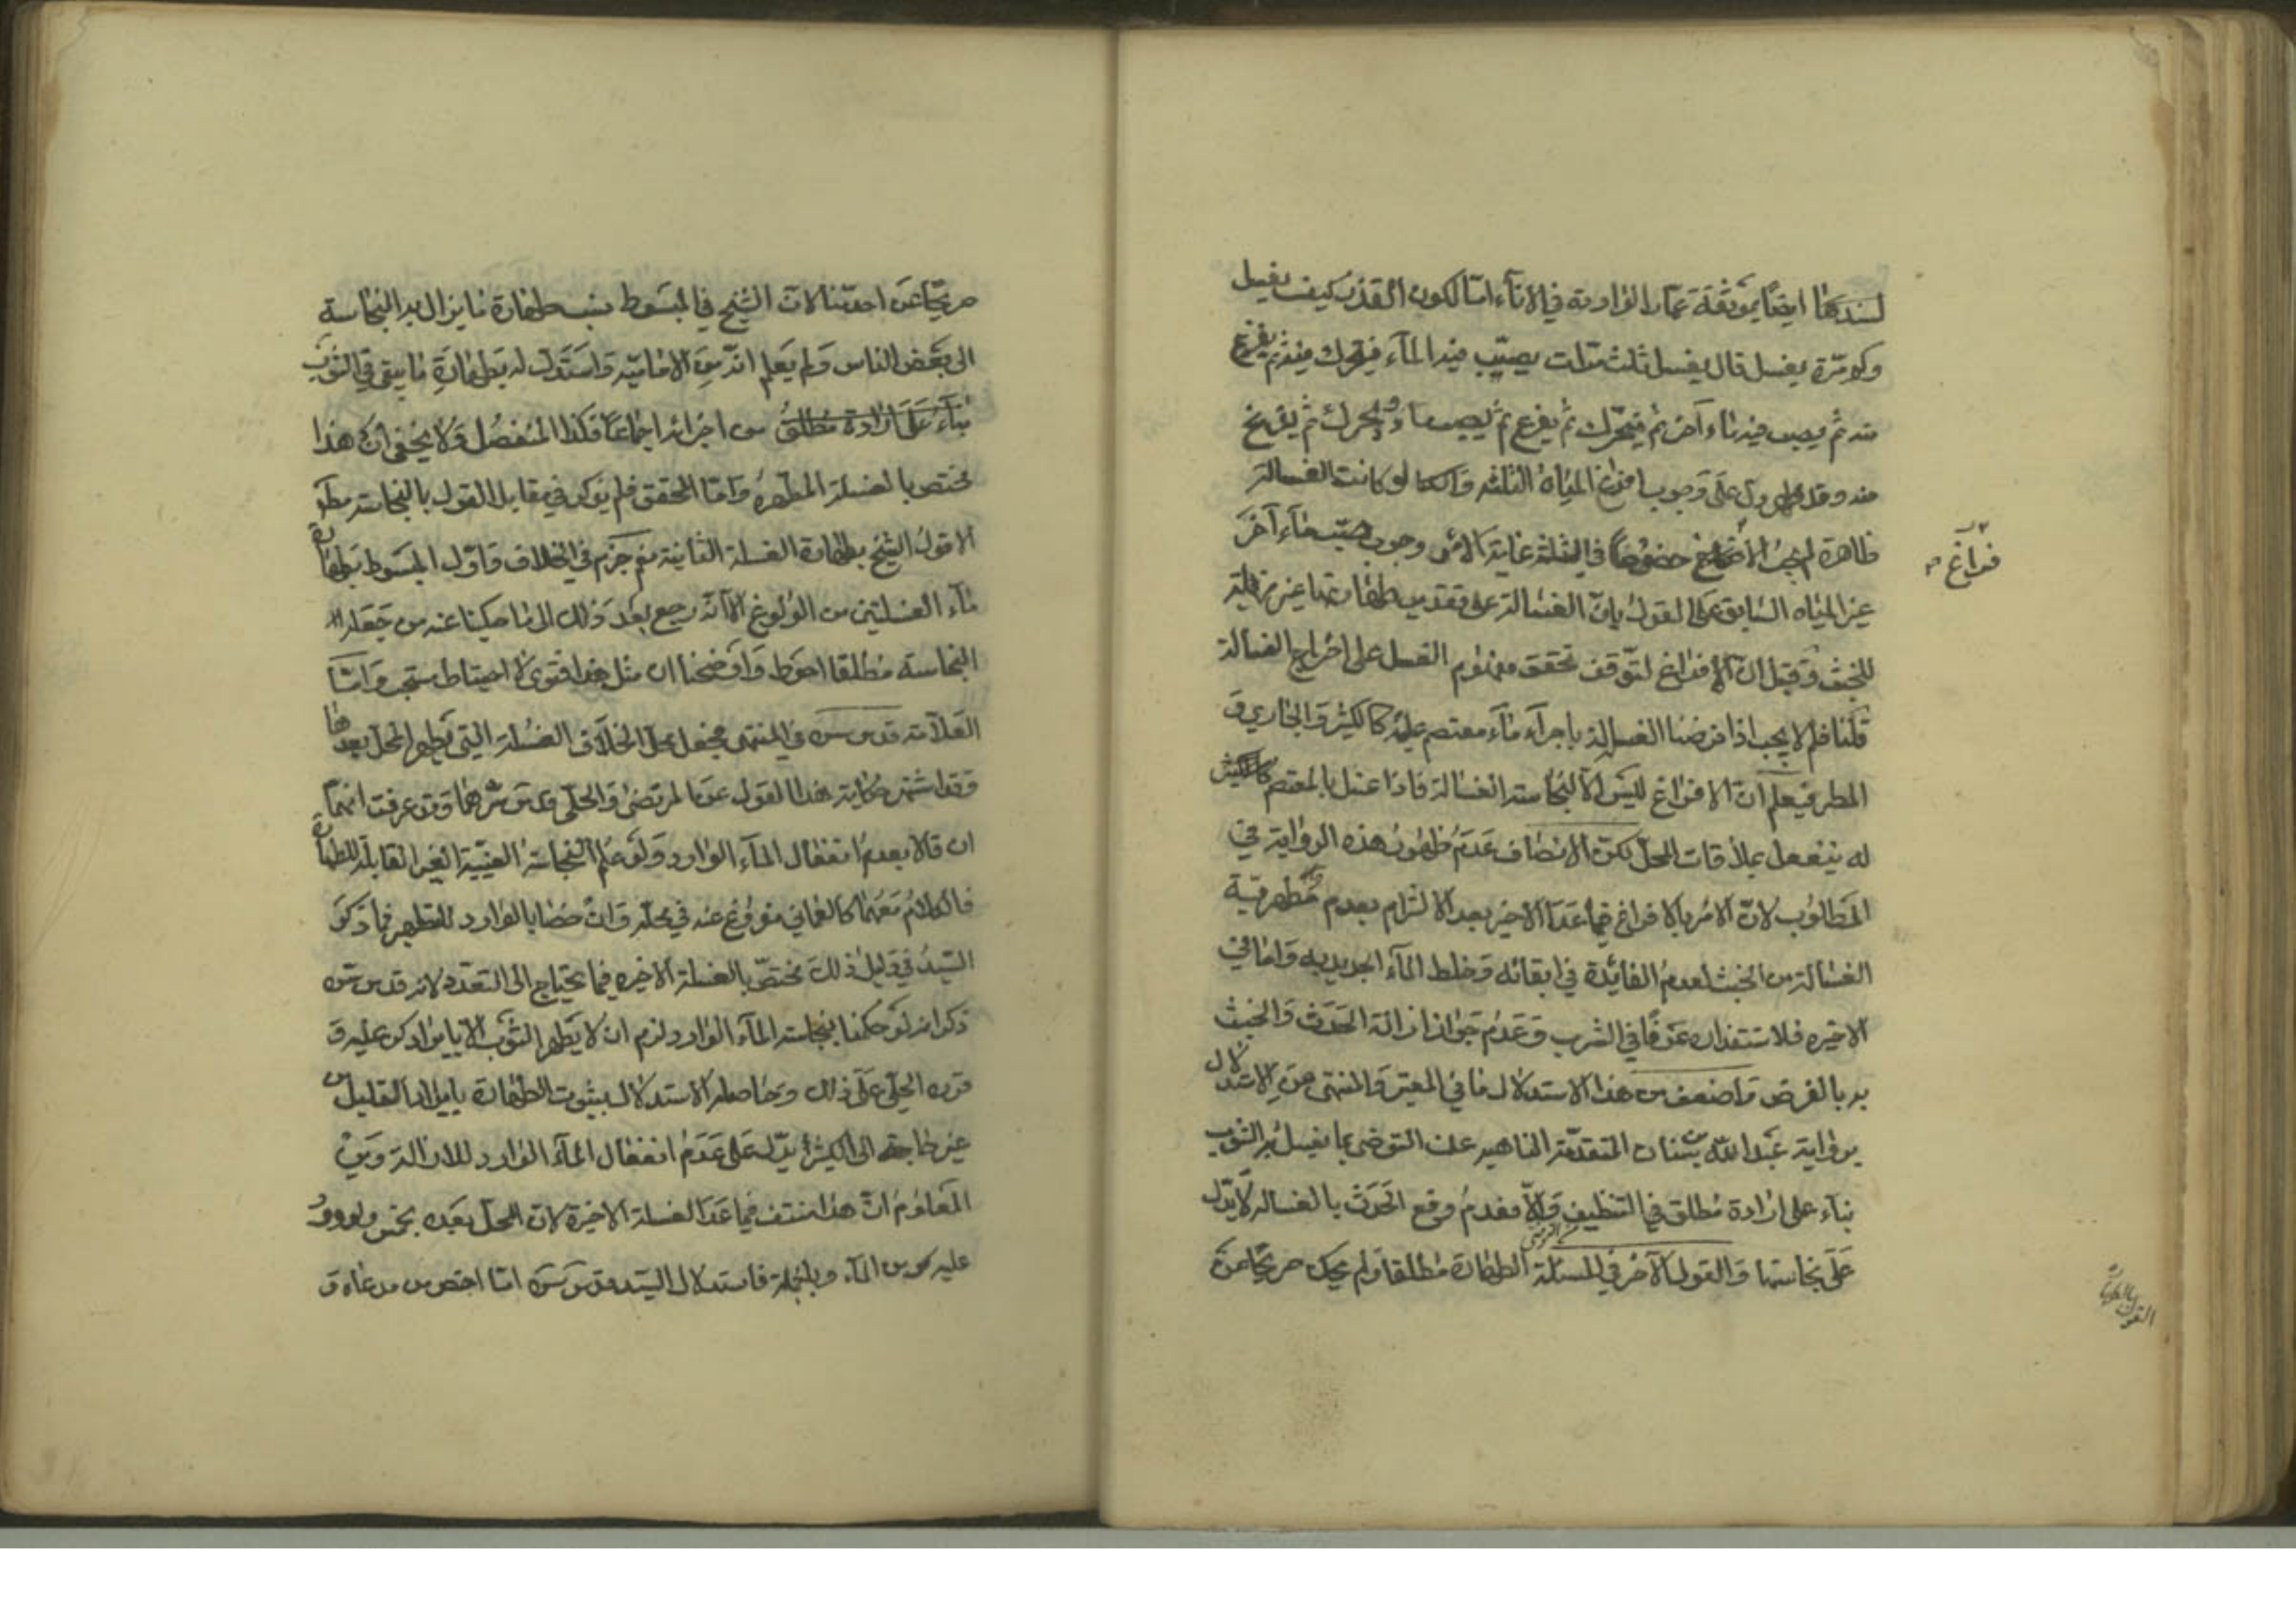 لسندها ايضا بموثقة عمار الواردة في الاناء اما الكون القذر كيف يغسل
وكم مرة يغسل قال يغسل ثلث مرات يصب فيه الماء فيحرك فيه ثم يفرغ
منه ثم يصب فيه ماء آخر ثم فيحرك ثم يفرغ ثم يصيب ما ويحرك ثم يفرغ
منه وقد طهر دل على وجوب افراغ المياه الثلثه لو كانت الغسالة
طاهرة لم يجب الافراغ خصوصا في الثلثة غاية الامر وجوب صب ماء آخر
غير المياه السابق على القول بان الغسالة على تقدير طهارتها غير مزيلة
للخبث وقيل ان الافراغ لتوقف تحقق مفهوم الغسل على اخراج الغسالة
قلنا فلم لا يجب اذا فرضنا الغسالة باجراء ماء معتصم عليه كالكثير والجاري و
المطر فيعلم ان الافراغ ليس الا لنجاسة الغسالة فاذا غسل بالمعتصم كالكثير
له ينفعل بملاقات المحل لكن الانصاف عدم ظهور هذه الرواية في
المطلوب لان الامر بالافراغ فيما عدا الاخير بعد الالتزام بعدم مطهرية
الغسالة من الخبث لعدم الفائدة في ابقائه وخلط الماء الجديد به واما في
الاخيره فلاستقذاره عرفا في الشرب وعدم جواز ازالة الحدث والخبث
به بالفرض واضعف من هذا الاستدلال ما في المعتبر والمنتهى من الاستدلال
برواية عبد الله بن سنان المتقدمة الناهيه عن التوضي بما يغسل به الثوب
بناء على ارادة مطلق في التنظيف والا فعدم رفع الحدث بالغسالة لا يدل
على نجاستها والقول الآخر في المسئلة الطهارة مطلقا ولم يحك صريحا عن
فراغ
القول بالطهارة
صريحا عن احدنا لان الشيخ في المبسوط ينسب طهارة ما يزال به النجاسة
الى بعض الناس ولم يعلم انه من الامامية واستدل له بطهارة ما يبقى في الثوب
بناء على ارادة مطلق من اجزائه اجماعا فكذا المنفصل ولا يخفى ان هذا
مختص بالغسلة المطهرة واما المحقق فلم يذكر في مقابل القول بالنجاسة مطلقا
الا قول الشيخ بطهارة الغسلة الثانية نعم جزم في الخلاف واول المبسوط بطهارة
ماء الغسلتين من الولوغ الا انه رجع بعد ذلك الى ما حكينا عنه من جعله
النجاسة مطلقا احوط واوضحنا ان مثل هذا فتوى لا احتياط مستحب واما
العلامة قدس سره في المنتهى فجعل محل الخلاف الغسلة التي يطهر المحل بعدها
وقد اشتهر حكاية هذا القول عن المرتضى والحلي قدس سرهما وقد عرفت انهما
ان قالا بعدم انفعال الماء الوارد ولو على النجاسة العينية الغير القابلة للطهارة
فالكلام معهما كالعماني مفروغ عنه في محله وان خصا بالوارد للتطهير فما ذكر
السيد في دليل ذلك مختص بالغسلة الاخيره فيما يحتاج الى التعدد لانه قدس سره
ذكر انه لو حكمنا بنجاسة الماء الوارد لزم ان لا يطهر الثوب الا بايراد كر عليه و
قرره الحلي على ذلك وحاصله الاستدلال بثبوت الطهارة بايراد القليل من
غير حاجة الى الكثير يدل على عدم انفعال الماء الوارد للازالة ومن
المعلوم ان هذا منتف فيما عدا الغسلة الاخيرة لان المحل بعده نجس ولو ورد
عليه كر من الماء وبالجملة فاستدلال السيد قدس سره اما اخص من مدعاه و